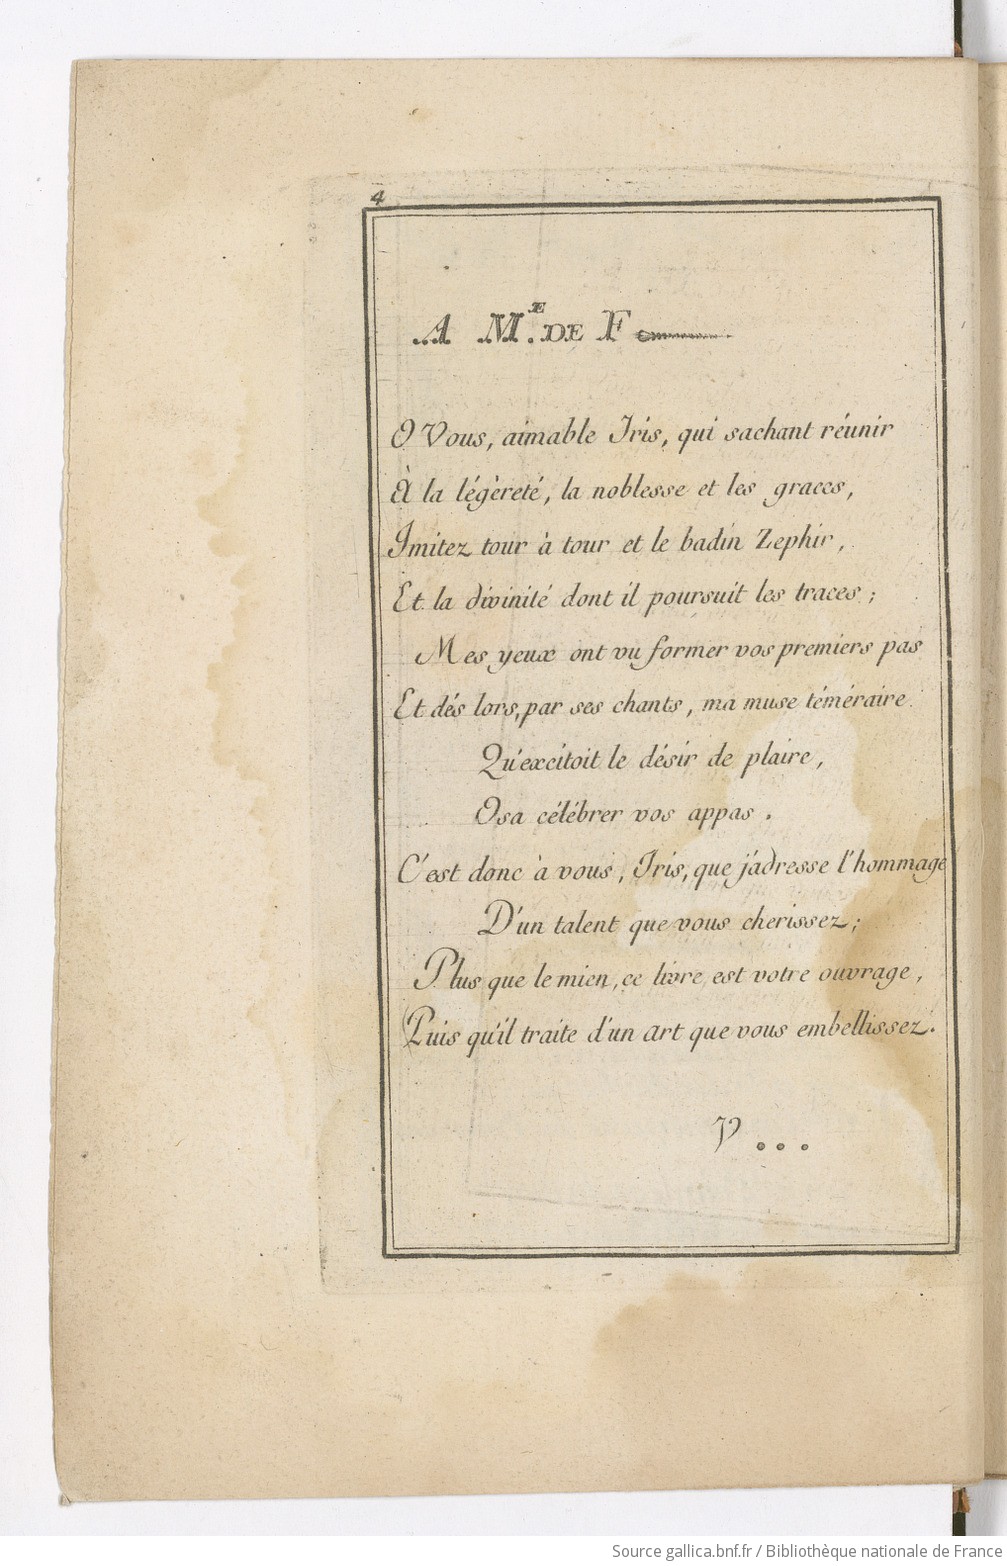 4
A M.E DE F
O Vous, aimable Iris, qui sachant réunir
À la légèreté, la noblesse et les graces,
Imitez tour à tour et le badin Zephir,
Et la divinité dont il poursuit les traces;
Mes yeux ont vu former vos premiers pas
Et dés lors, par ses chants, ma muse téméraire
Qu'excitoit le désir de plaire,
Osa célébrer vos appas.
C'est donc à vous, Iris, que j'adresse l'hommage
D'un talent que vous cherissez;
Plus que le mien, ce livre est votre ouvrage,
Puis qu'il traite d'un art que vous embellissez.
V...
Source gallica.bnf.fr / Bibliothèque nationale de France